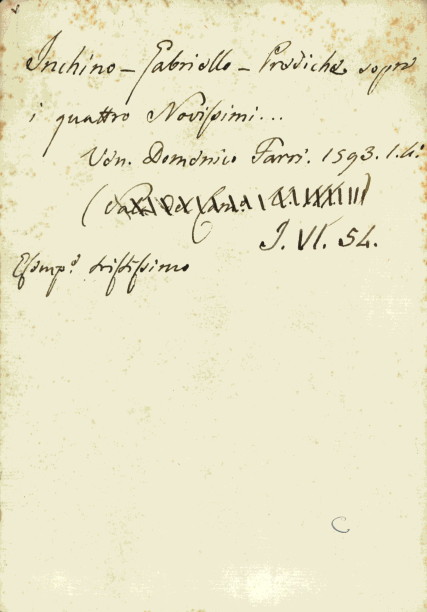 Inchino – Gabriello – Prediche sopra
i quattro Novissimi...
Ven. Domenico Farri. 1593. 1. 4.
I. VI. 54.
Esemp.e tristissimo
C